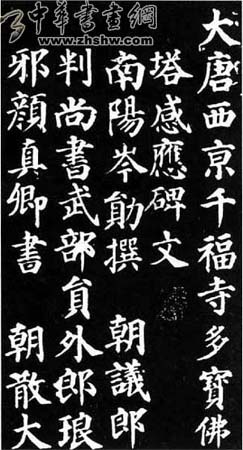 中華書畫網
www.zhshw.com
大唐西亰千福寺多寶佛
塔感應碑文
南陽岑勛撰 朝議郎
判尚書武部貟外郎琅
邪顏真卿書 朝散大